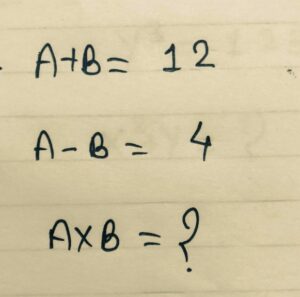 A+B = 12
A - B = 4
A×B = ?